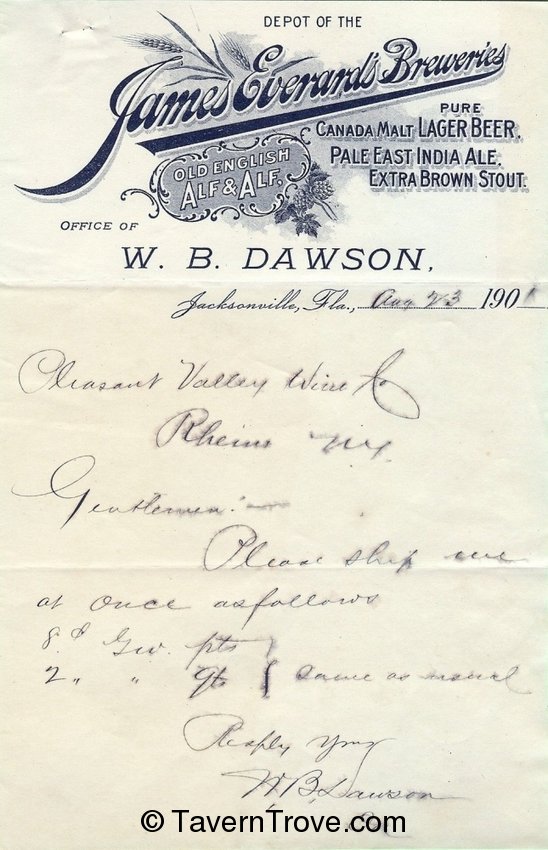 DEPOT OF THE
James Everard's Breweries
PURE
CANADA MALT LAGER BEER.
PALE EAST INDIA ALE.
EXTRA BROWN STOUT.
OLD ENGLISH
ALF & ALF.
OFFICE OF
W. B. DAWSON,
Jacksonville, Fla., Aug 23 1901
Pleasant Valley Wine Co
Rheims NY
Gentlemen:
Please ship me
at once as follows
8 pts
2 " " qts } same as usual
Resply Yrs
W. B. Dawson
© TavernTrove.com